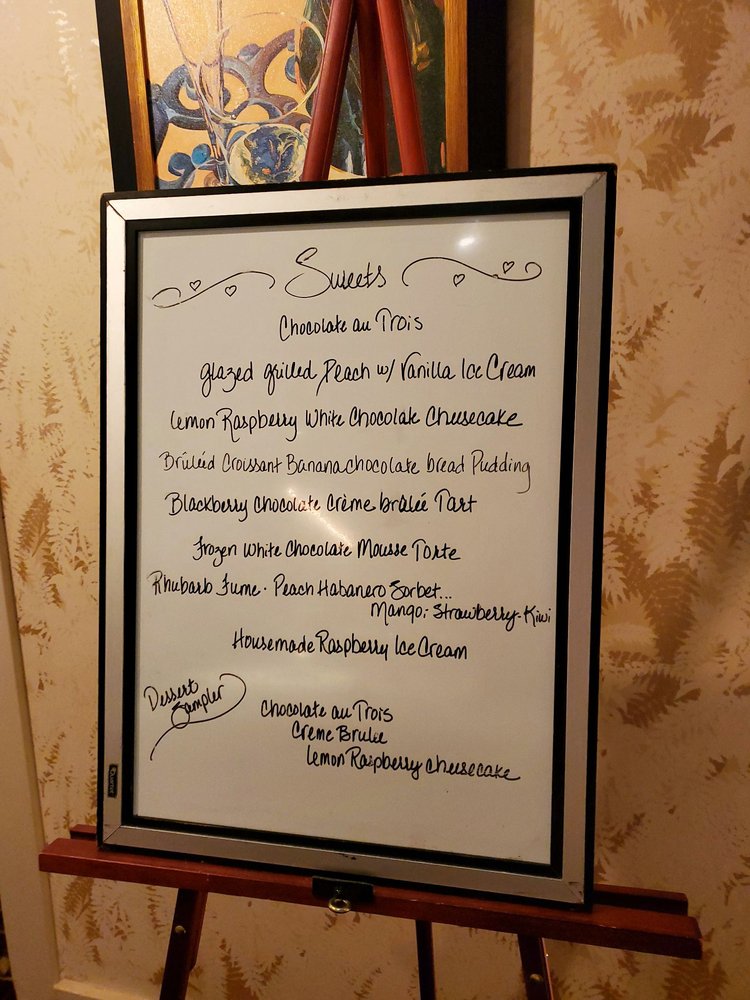 Sweets
Chocolate au Trois
glazed grilled Peach w/ Vanilla Ice Cream
Lemon Raspberry White Chocolate Cheesecake
Brúléed Croissant Banana chocolate bread Pudding
Blackberry Chocolate Crème brûlée Tart
Frozen White Chocolate Mousse Torte
Rhubarb Fume · Peach Habanero Sorbet...
Mango; Strawberry-Kiwi
Housemade Raspberry Ice Cream
Dessert
Sampler
Chocolate au Trois
Crème Brulee
Lemon Raspberry cheesecake
QUARTET